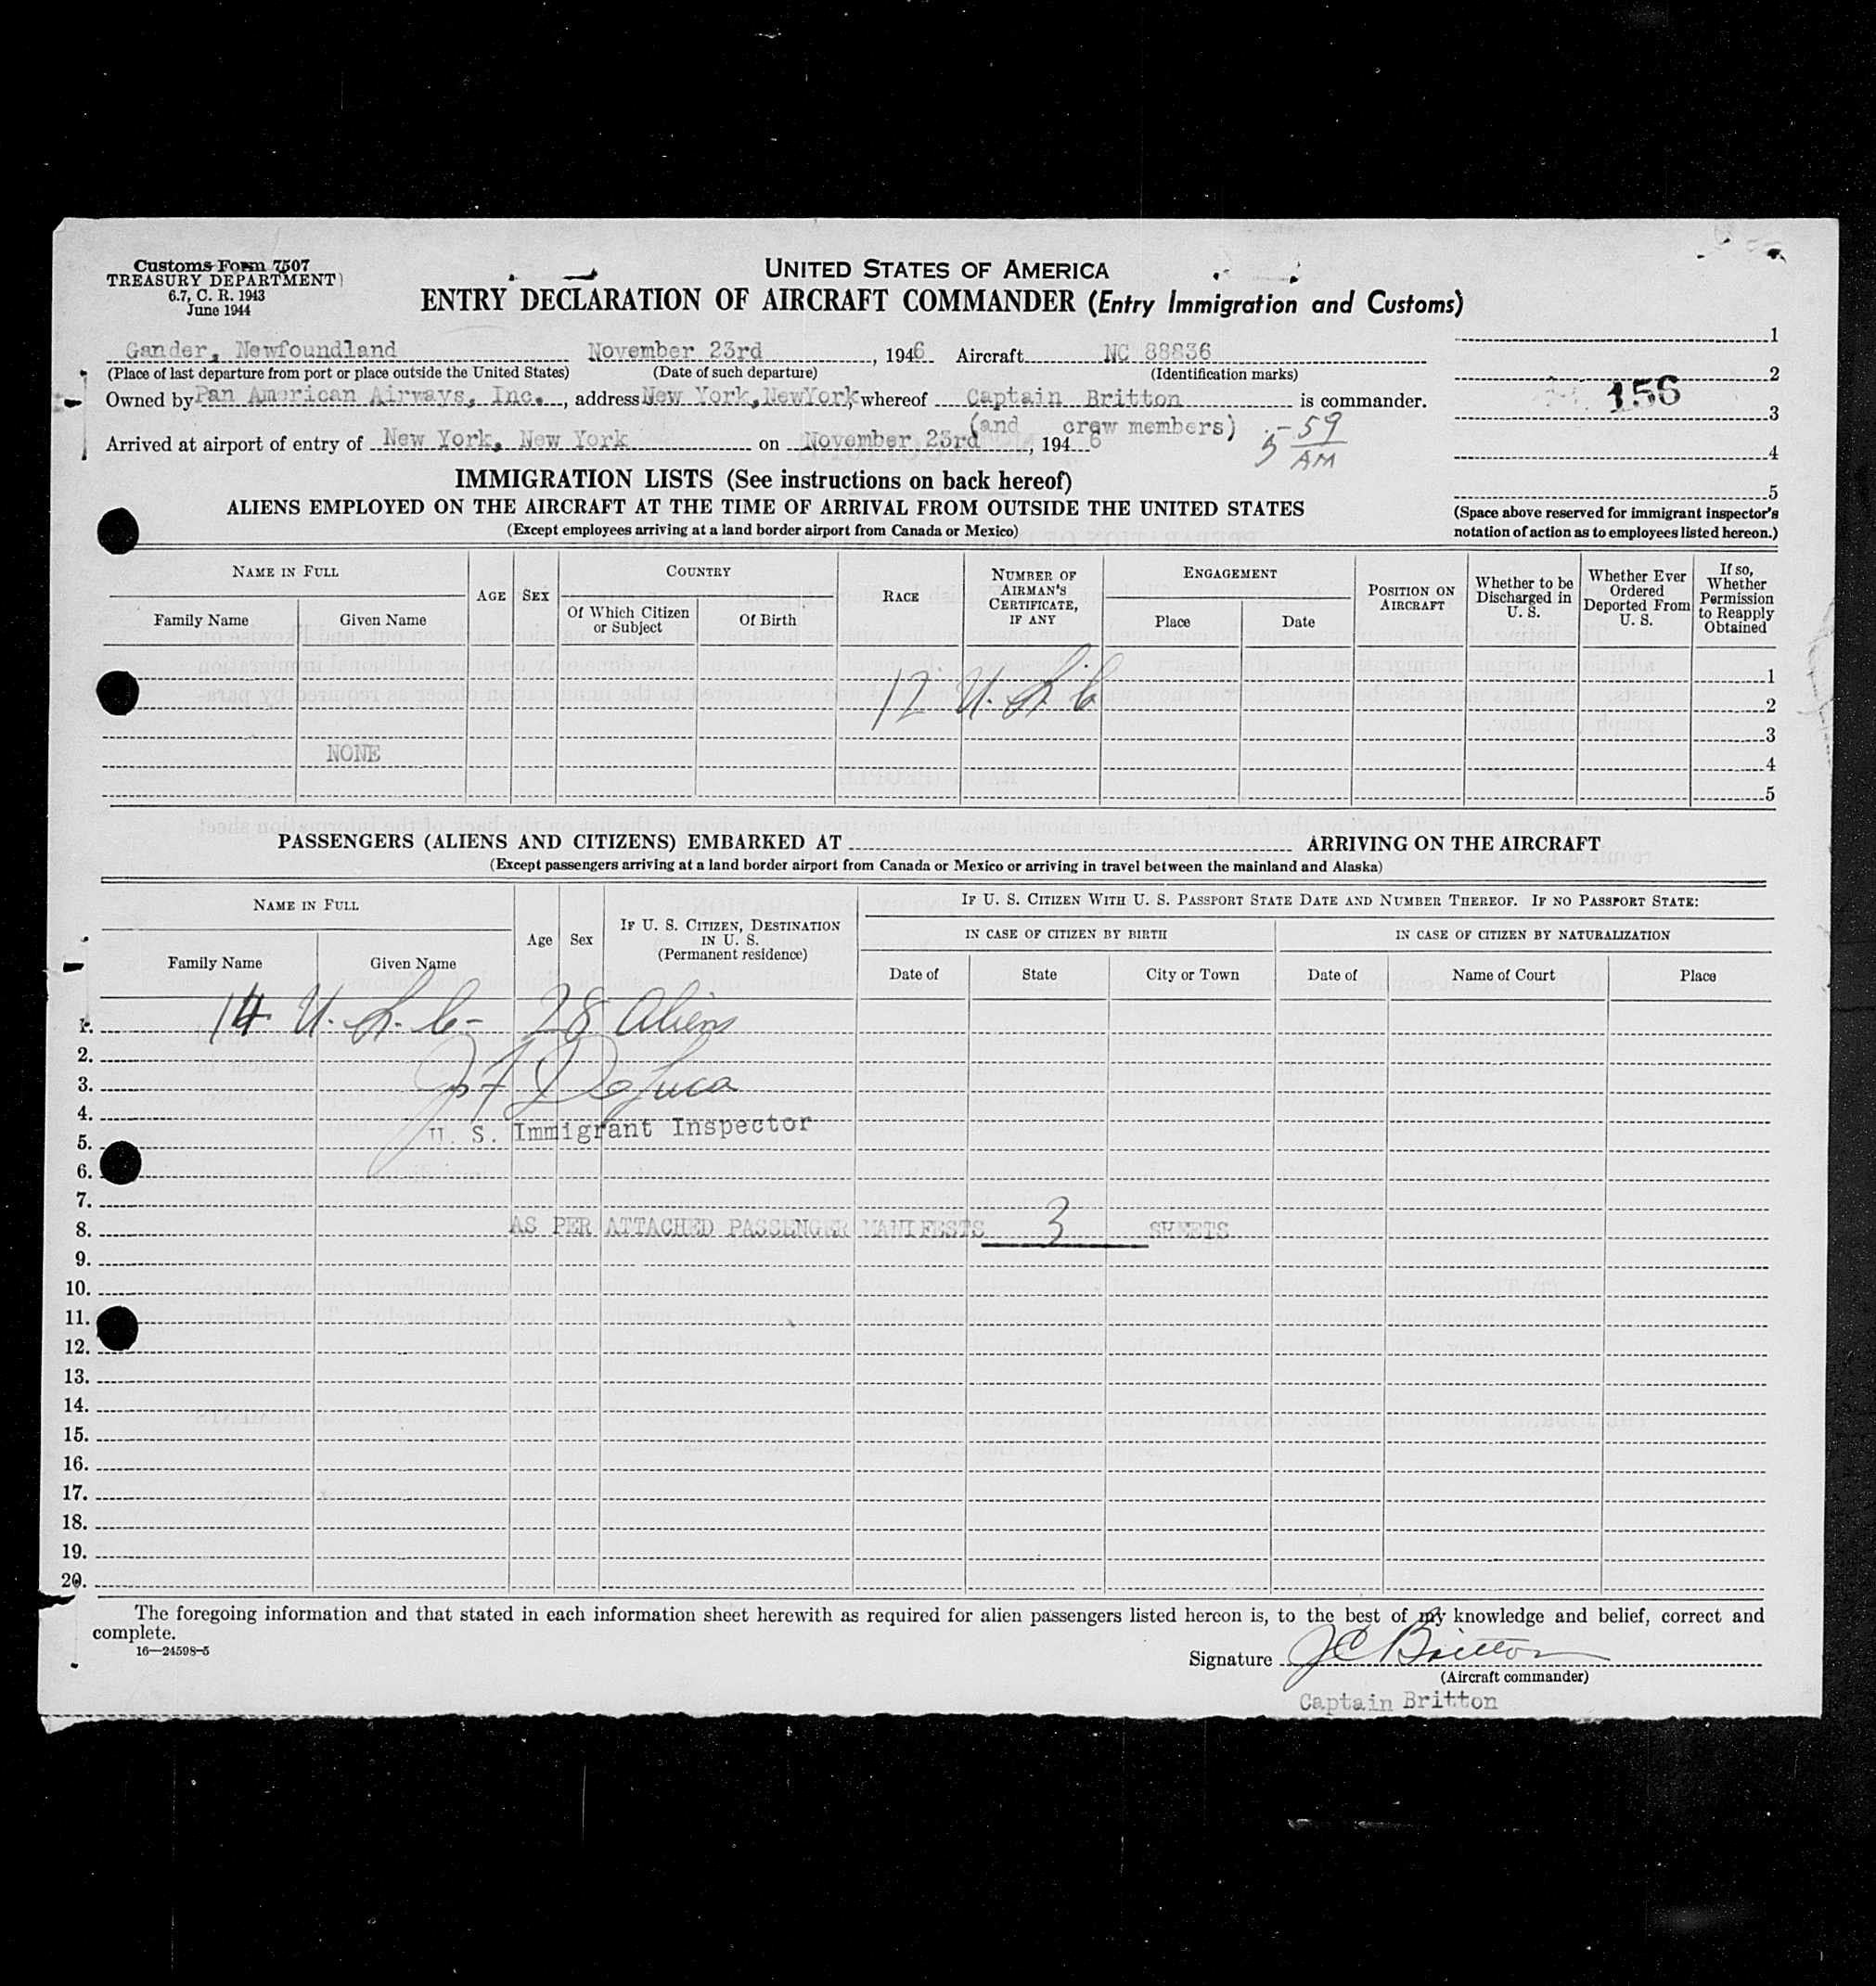 Customs Form 7507
TREASURY DEPARTMENT
6.7, C. R. 1943
June 1944
UNITED STATES OF AMERICA
ENTRY DECLARATION OF AIRCRAFT COMMANDER (Entry Immigration and Customs)
Gander, Newfoundland November 23rd, 1946 Aircraft NC 88836
(Place of last departure from port or place outside the United States) (Date of such departure) (Identification marks)
Owned by Pan American Airways, Inc., address New York, NewYork, whereof Captain Britton is commander.
(and crew members)
Arrived at airport of entry of New York, New York on November 23rd, 1946 5-59 AM
1
2
156
3
4
5
(Space above reserved for immigrant inspector's
notation of action as to employees listed hereon.)
IMMIGRATION LISTS (See instructions on back hereof)
ALIENS EMPLOYED ON THE AIRCRAFT AT THE TIME OF ARRIVAL FROM OUTSIDE THE UNITED STATES
(Except employees arriving at a land border airport from Canada or Mexico)
NAME IN FULL
Family Name Given Name
AGE SEX
COUNTRY
Of Which Citizen or Subject Of Birth
RACE
NUMBER OF AIRMAN'S CERTIFICATE, IF ANY
ENGAGEMENT
Place Date
POSITION ON AIRCRAFT
Whether to be Discharged in U. S.
Whether Ever Ordered Deported From U. S.
If so, Whether Permission to Reapply Obtained
1
12 U.S.C 2
3
NONE 4
5
PASSENGERS (ALIENS AND CITIZENS) EMBARKED AT ARRIVING ON THE AIRCRAFT
(Except passengers arriving at a land border airport from Canada or Mexico or arriving in travel between the mainland and Alaska)
NAME IN FULL
Family Name Given Name
Age Sex
IF U. S. CITIZEN, DESTINATION IN U. S.
(Permanent residence)
IF U. S. CITIZEN WITH U. S. PASSPORT STATE DATE AND NUMBER THEREOF. IF NO PASSPORT STATE:
IN CASE OF CITIZEN BY BIRTH IN CASE OF CITIZEN BY NATURALIZATION
Date of State City or Town Date of Name of Court Place
1. 14 U.S.C- 28 Aliens
2.
3. DeLuca
4.
5. U. S. Immigrant Inspector
6.
7.
8. AS PER ATTACHED PASSENGER MANIFESTS 3 SHEETS
9.
10.
11.
12.
13.
14.
15.
16.
17.
18.
19.
20.
The foregoing information and that stated in each information sheet herewith as required for alien passengers listed hereon is, to the best of my knowledge and belief, correct and
complete.
16—24598-5
Signature JC Britton
(Aircraft commander)
Captain Britton